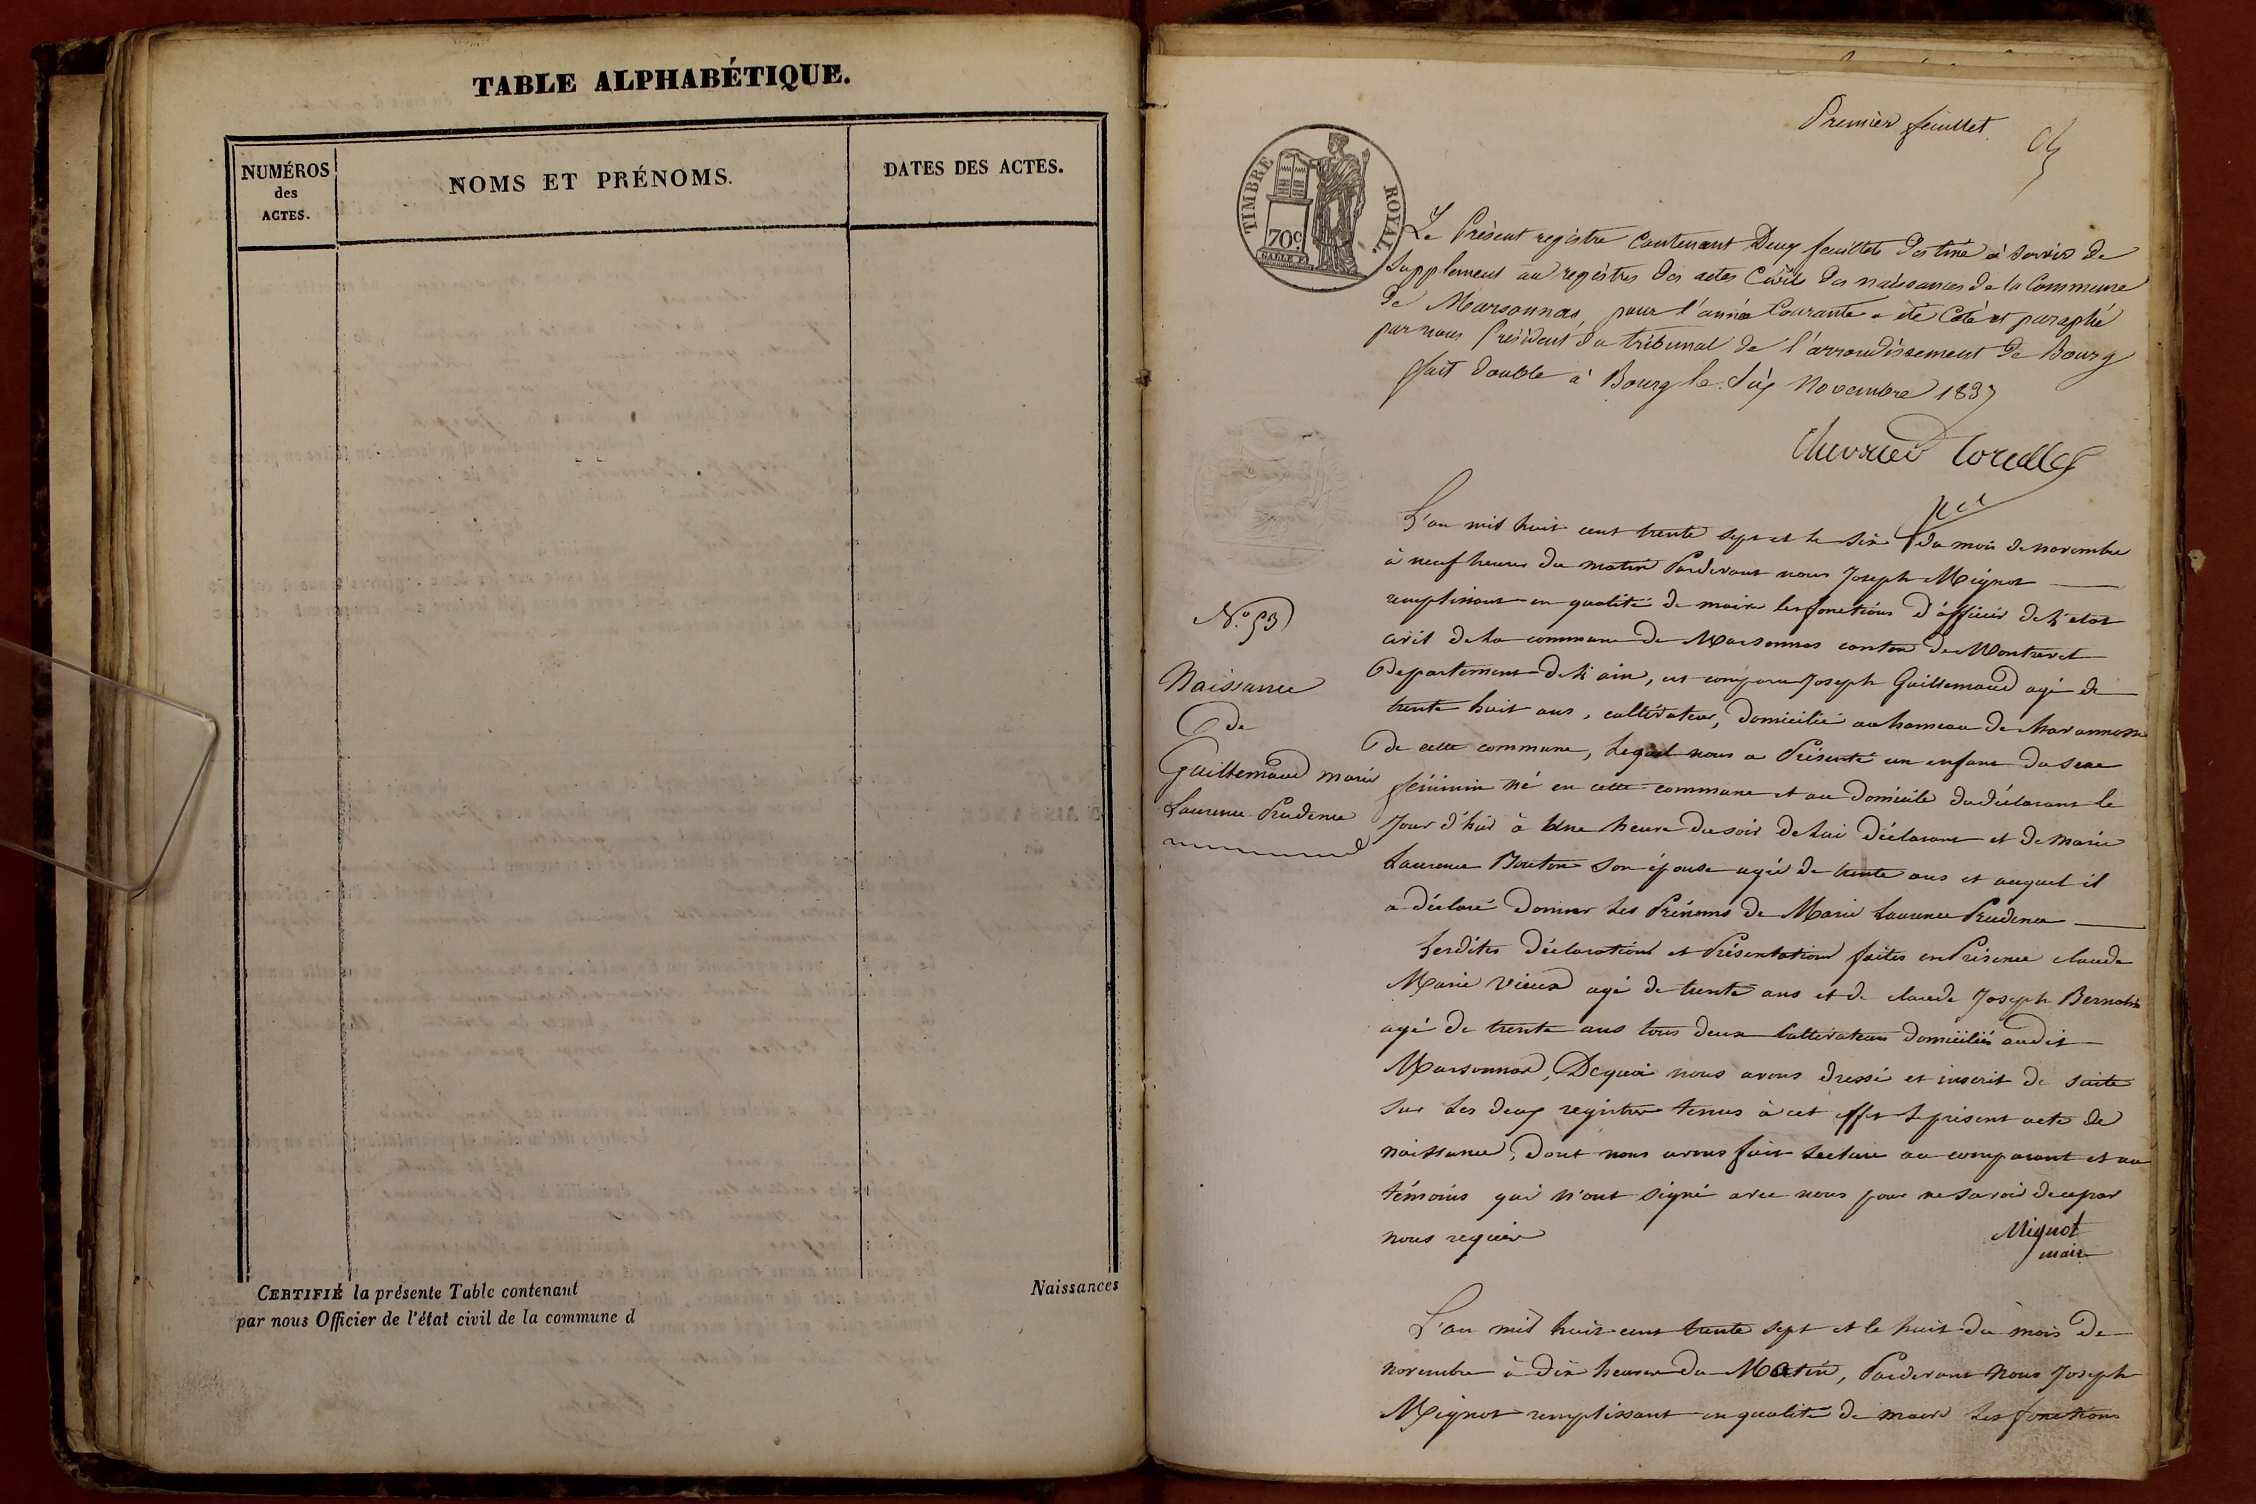 TABLE ALPHABÉTIQUE.
NUMÉROS
des
ACTES.
NOMS ET PRÉNOMS.
DATES DES ACTES.
CERTIFIÉ la présente Table contenant Naissances
par nous Officier de l'état civil de la commune d
Premier feuillet.
TIMBRE ROYAL
70c
Le Présent registre contenant Deux feuillets Destiné à servir De
Supplement au registres des actes Civils des naissances de la Commune
De Marsonnas, pour l'année Courante a été Coté et paraphé
par nous Président du tribunal De l'arrondissement De Bourg
fait double à Bourg le Six Novembre 1837
N.º 53
Naissance
De
Guillemaud marie
Laurence Prudence
L'an mil huit cent trente sept et le six du mois de novembre
à neuf heures du matin Pardevant nous Joseph Mignot
remplissant en qualité de maire les fonctions d'officier de l'etat
civil de la commune de Marsonnas canton de Montrevel
Departement de l'ain, est comparu Joseph Guillemaud agé de
trente huit ans, cultivateur, domicilié au hameau de
De cette commune, Lequel nous a Présenté un enfant du sexe
féminin né en cette commune et au Domicile du déclarant le
Jour d'hui à Une heure du soir de lui Déclarant et de marie
Laurence Bouton son épouse agée de trente ans et auquel il
a déclaré donner les Prénoms de Marie Laurence Prudence
Lesdites Déclaration et Présentation faites en Présence claude
Marie Vieux agé de trente ans et de claude Joseph
agé de trente ans tous deux Cultivateurs domiciliés audit
Marsonnas, De quoi nous avons dressé et inscrit de suite
sur les deux registres tenus à cet effet le présent acte de
naissance, dont nous avons fait lecture au comparant et au
témoins qui n'ont signé avec nous pour ne savoir de ce par
nous requis
Mignot
maire
L'an mil huit cent trente sept et le huit du mois De
novembre à dix heures du Matin, Pardevant Nous Joseph
Mignot remplissant en qualité de maire les fonctions